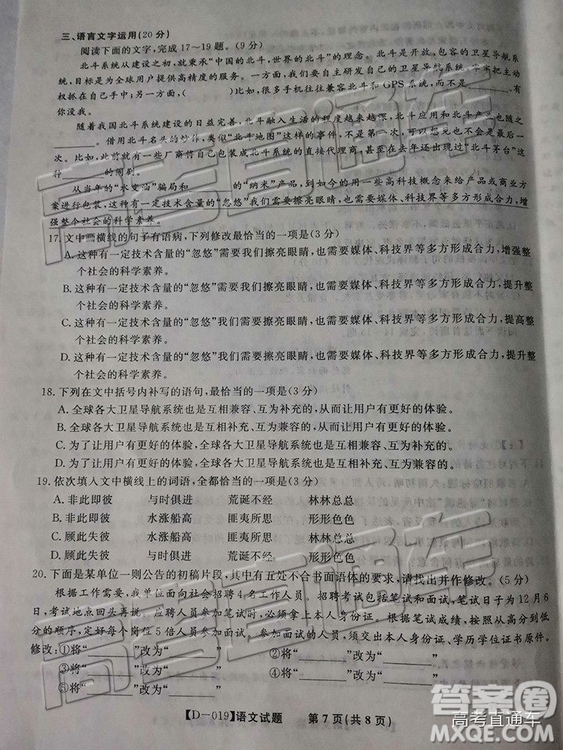 三、语言文字运用(20分)
阅读下面的文字,完成17～19题。(9分)
北斗系统从建设之初起,就秉承"中国的北斗,世界的北斗"的理念。北斗是开放、包容的卫星导航系统,也是为全球用户提供高精度的服务。一方面,我们有自主研发自己的卫星导航系统,争把主动
权抓在自己手中;另一方面,(        )比如,很多手机往往兼容北斗和GPS系统,而不是________,有
你没我。
随着我国北斗系统建设的日益完善,北斗融入生活的程度越来越深,北斗应用和北斗产业也随之
________。借用北斗名头的炒作,类似"北斗地图"这样的事件,不是第一次,也不会是最后一
次。比如,此前有厂商竹自己包装成北斗系统的直接代理商,甚至在去年还出现过"北斗茅台"这
行________的闹剧。
从当年的"水变油"骗局和________的"纳米"产品,到如今的想用高科技概念来给产品或商业方
案进行包装,这种有一定技术含量的"忽悠"我们需要擦亮眼睛,也需要媒体、科技界等多方形成合力,增
强整个社会的科学素养。
17.文中画横线的句子有语病,下列修改最恰当的一项是(3分)
A.这种有一定技术含量的"忽悠"需要我们擦亮眼睛,也需要媒体、科技界等多方形成合力,增强整
个社会的科学素养。
B.这种有一定技术含量的"忽悠"需要我们擦亮眼睛,也需要媒体、科技界等多方形成合力,提升整
个社会的科学素养。
C.对这种有一定技术含量的"忽悠"我们需要擦亮眼睛,也需要媒体、科技界等多方形成合力,提高整
个社会的科学素养。
D.对这种有一定技术含量的"忽悠"我们需要擦亮眼睛,需要媒体、科技界等多方形成合力,提升整
个社会的科学素养。
18.下列在文中括号内补写的语句,最恰当的一项是(3分)
A.全球各大卫星导航系统也是互相兼容、互为补充的,从而让用户有更好的体验。
B.全球各大卫星导航系统也是互相兼容、互相补充的,从而让用户有更好的体验。
C.为了让用户有更好的体验,全球各大卫星导航系统也是互相兼容、互为补充的。
D.为了让用户有更好的体验,全球各大卫星导航系统也是互相兼容、互相补充的。
19.依次填入文中横线上的词语,全都恰当的一项是(3分)
A.非此即彼 与时俱进 荒诞不经 林林总总
B.非此即彼 水涨船高 匪夷所思 形形色色
C.顾此失彼 水涨船高 匪夷所思 林林总总
D.顾此失彼 与时俱进 荒诞不经 形形色色
20.下面是某单位一则公告的初稿片段,其中有五处不合书面语体的要求,请找出并作修改。(5分)
根据工作需要,我单位面向社会招聘4名工作人员。招聘考试包括笔试和面试,笔试日子为12月6
日,考试地点回头再说。应聘人员参加笔试时,必须拿上本人身份证。根据笔试成绩,按照从高分到低
分的顺序,定下每个岗位5倍人员参加面试。参加面试的人员,须交出本人身份证、学历学位证书原件。
修改:①将"________"改为"________" ②将"________"改为"________"
③将"________"改为"________" ④将"________"改为"________"
⑤将"________"改为"________"
【D-019】语文试题 第7页(共8页)
高考直通车
高考直通车
答案圈
高考直通车